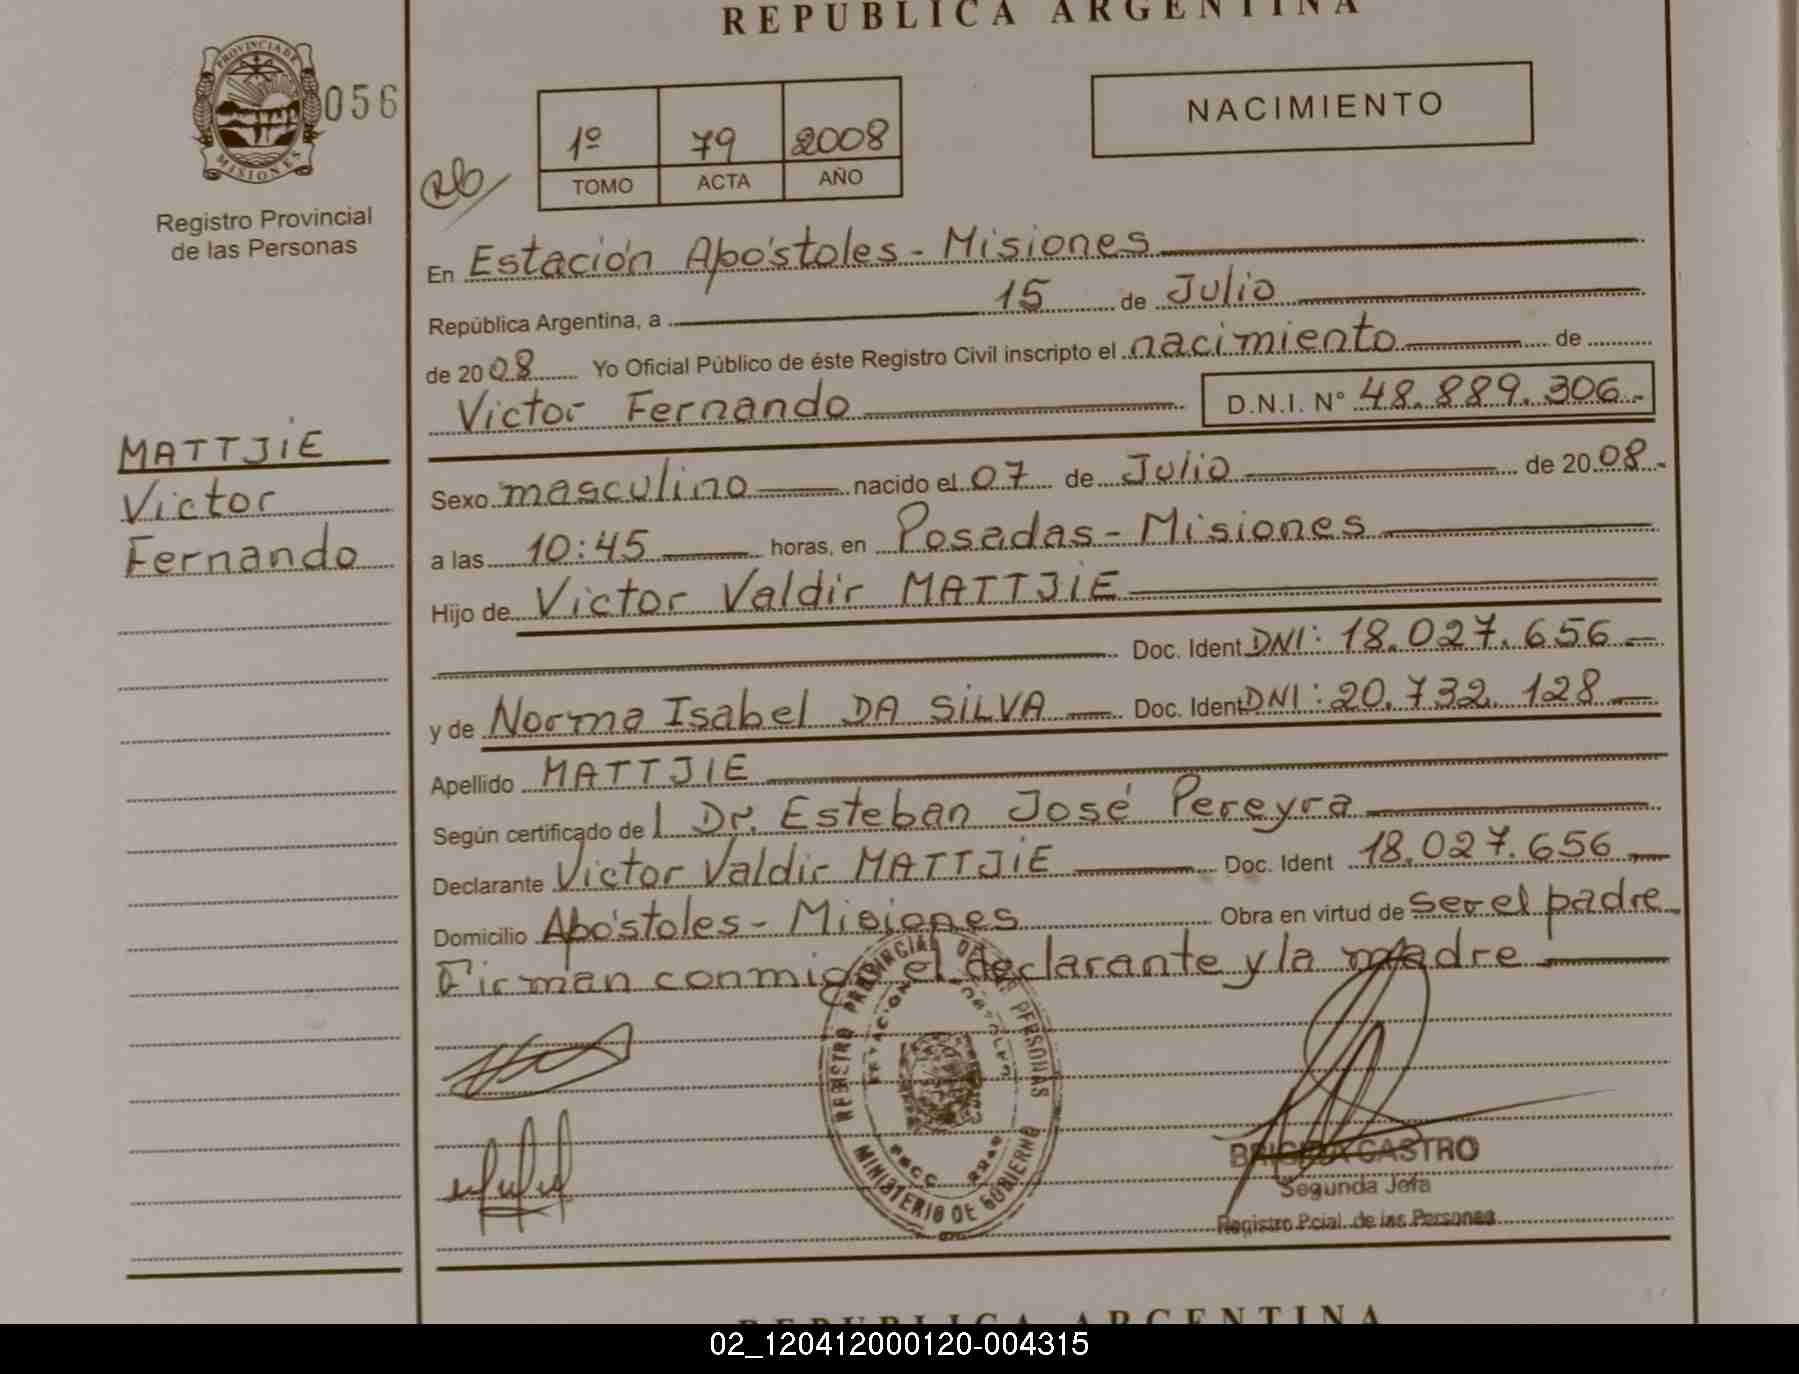 REPUBLICA ARGENTINA
PROVINCIA DE
MISIONES
056
Registro Provincial
de las Personas
1º 79 2008
TOMO ACTA AÑO
NACIMIENTO
En Estación Apóstoles - Misiones
República Argentina, a 15 de Julio
de 2008 Yo Oficial Público de éste Registro Civil inscripto el nacimiento de
Victor Fernando D.N.I. Nº 48.889.306.-
MATTJIE
Victor
Fernando
Sexo masculino nacido el 07 de Julio de 2008.-
a las 10:45 horas, en Posadas - Misiones
Hijo de Victor Valdir MATTJIE
Doc. Ident DNI: 18.027.656
y de Norma Isabel DA SILVA Doc. Ident DNI: 20.732.128
Apellido MATTJIE
Según certificado de l Dr. Esteban José Pereyra
Declarante Victor Valdir MATTJIE Doc. Ident 18.027.656
Domicilio Apóstoles - Misiones Obra en virtud de ser el padre
Firman conmigo el declarante y la madre
REGISTRO PROVINCIAL DE LAS PERSONAS
MINISTERIO DE GOBIERNO
CASTRO
Segunda Jefa
Registro Pcial. de las Personas
REPUBLICA ARGENTINA
02_120412000120-004315